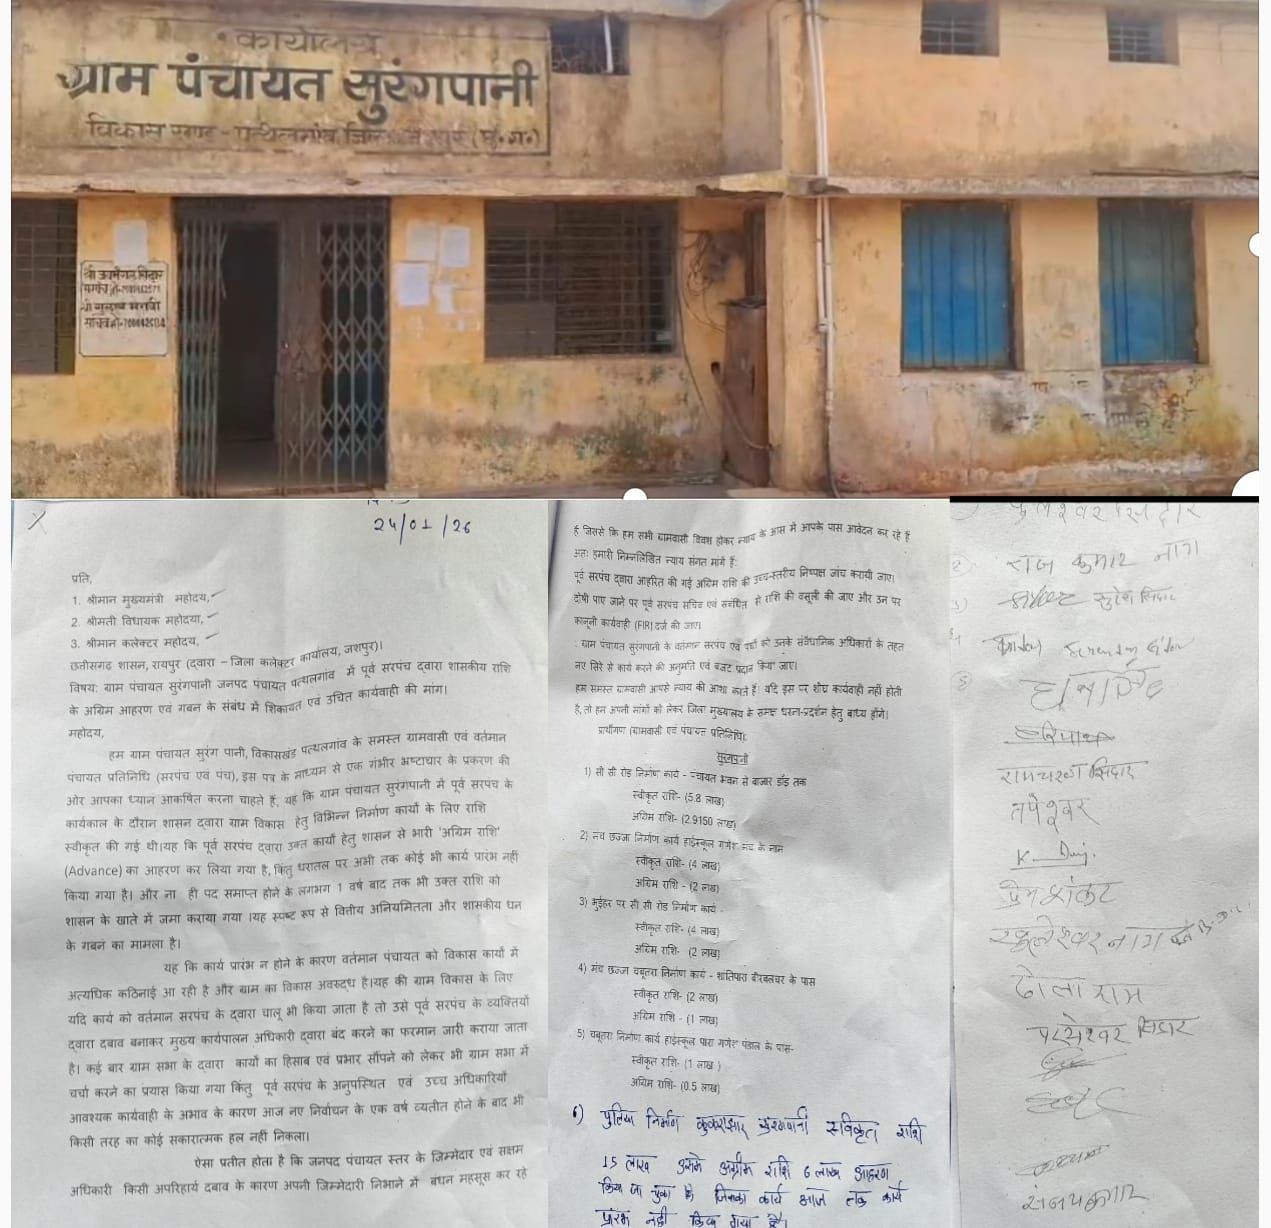 कार्यालय
ग्राम पंचायत सुरंगपानी
विकास खण्ड - पत्थलगांव, जिला (छ.ग.)
श्री
सरपंच
श्री गुलाब मरावी
सचिव
24/01/26
प्रति,
1. श्रीमान मुख्यमंत्री महोदय,
2. श्रीमती विधायक महोदया,
3. श्रीमान कलेक्टर महोदय,
छत्तीसगढ शासन, रायपुर (द्वारा – जिला कलेक्टर कार्यालय, जशपुर)।
विषय: ग्राम पंचायत सुरंगपानी जनपद पंचायत पत्थलगांव में पूर्व सरपंच द्वारा शासकीय राशि
के अग्रिम आहरण एवं गबन के संबंध में शिकायत एवं उचित कार्यवाही की मांग।
महोदय,
हम ग्राम पंचायत सुरंग पानी, विकासखंड पत्थलगांव के समस्त ग्रामवासी एवं वर्तमान
पंचायत प्रतिनिधि (सरपंच एवं पंच), इस पत्र के माध्यम से एक गंभीर भ्रष्टाचार के प्रकरण की
ओर आपका ध्यान आकर्षित करना चाहते हैं, यह कि ग्राम पंचायत सुरंगपानी में पूर्व सरपंच के
कार्यकाल के दौरान शासन द्वारा ग्राम विकास हेतु विभिन्न निर्माण कार्यों के लिए राशि
स्वीकृत की गई थी।यह कि पूर्व सरपंच द्वारा उक्त कार्यों हेतु शासन से भारी 'अग्रिम राशि'
(Advance) का आहरण कर लिया गया है, किंतु धरातल पर अभी तक कोई भी कार्य प्रारंभ नहीं
किया गया है। और ना ही पद समाप्त होने के लगभग 1 वर्ष बाद तक भी उक्त राशि को
शासन के खाते में जमा कराया गया ।यह स्पष्ट रूप से वित्तीय अनियमितता और शासकीय धन
के गबन का मामला है।
यह कि कार्य प्रारंभ न होने के कारण वर्तमान पंचायत को विकास कार्यों में
अत्यधिक कठिनाई आ रही है और ग्राम का विकास अवरुद्ध है।यह की ग्राम विकास के लिए
यदि कार्य को वर्तमान सरपंच के द्वारा चालू भी किया जाता है तो उसे पूर्व सरपंच के व्यक्तियों
द्वारा दबाव बनाकर मुख्य कार्यपालन अधिकारी द्वारा बंद करने का फरमान जारी कराया जाता
है। कई बार ग्राम सभा के द्वारा कार्यों का हिसाब एवं प्रभार सौंपने को लेकर भी ग्राम सभा में
चर्चा करने का प्रयास किया गया किंतु पूर्व सरपंच के अनुपस्थित एवं उच्च अधिकारियों
आवश्यक कार्यवाही के अभाव के कारण आज नए निर्वाचन के एक वर्ष व्यतीत होने के बाद भी
किसी तरह का कोई सकारात्मक हल नहीं निकला।
ऐसा प्रतीत होता है कि जनपद पंचायत स्तर के जिम्मेदार एवं सक्षम
अधिकारी किसी अपरिहार्य दबाव के कारण अपनी जिम्मेदारी निभाने में बंधन महसूस कर रहे
है जिससे कि हम सभी ग्रामवासी विवश होकर न्याय के आस में आपके पास आवेदन कर रहे हैं
अतः हमारी निम्नलिखित न्याय संगत मांगें हैं:
पूर्व सरपंच द्वारा आहरित की गई अग्रिम राशि की उच्च-स्तरीय निष्पक्ष जांच करायी जाए।
दोषी पाए जाने पर पूर्व सरपंच सचिव एवं संबंधित से राशि की वसूली की जाए और उन पर
कानूनी कार्यवाही (FIR) दर्ज की जाए।
ग्राम पंचायत सुरंगपानी के वर्तमान सरपंच एवं पंचों को उनके संवैधानिक अधिकारों के तहत
नए सिरे से कार्य करने की अनुमति एवं बजट प्रदान किया जाए।
हम समस्त ग्रामवासी आपसे न्याय की आशा करते हैं। यदि इस पर शीघ्र कार्यवाही नहीं होती
है, तो हम अपनी मांगों को लेकर जिला मुख्यालय के समक्ष धरना-प्रदर्शन हेतु बाध्य होंगे।
प्रार्थीगण (ग्रामवासी एवं पंचायत प्रतिनिधि):
सुरंगपानी
1) सी सी रोड निर्माण कार्य - पंचायत भवन से बाजार डाँड तक
स्वीकृत राशि- (5.8 लाख)
अग्रिम राशि- (2.9150 लाख)
2) मंच छज्जा निर्माण कार्य हाईस्कूल गणेश मंच के नाम
स्वीकृत राशि- (4 लाख)
अग्रिम राशि - (2 लाख)
3) भुईहर पर सी सी रोड निर्माण कार्य -
स्वीकृत राशि- (4 लाख)
अग्रिम राशि- (2 लाख)
4) मंच छज्जा चबूतरा निर्माण कार्य - शांतिपारा बीरबलघर के पास
स्वीकृत राशि- (2 लाख)
अग्रिम राशि - (1 लाख)
5) चबूतरा निर्माण कार्य हाईस्कूल पारा गणेश पंडाल के पास-
स्वीकृत राशि- (1 लाख )
अग्रिम राशि- (0.5 लाख)
6) पुलिया निर्माण कुकराझार सुरंगपानी स्वीकृत राशि
15 लाख उसमे अग्रीम राशि 6 लाख आहरण
किया जा चुका है जिसका कार्य आज तक कार्य
प्रारंभ नही किया गया है।
राज कुमार नाग
सुरेश सिदार
हरिनाथ
रामचरण सिदार
तपेश्वर
प्रेम शंकर
नाग
ढोला राम
परमेश्वर सिदार
संजय कुमार